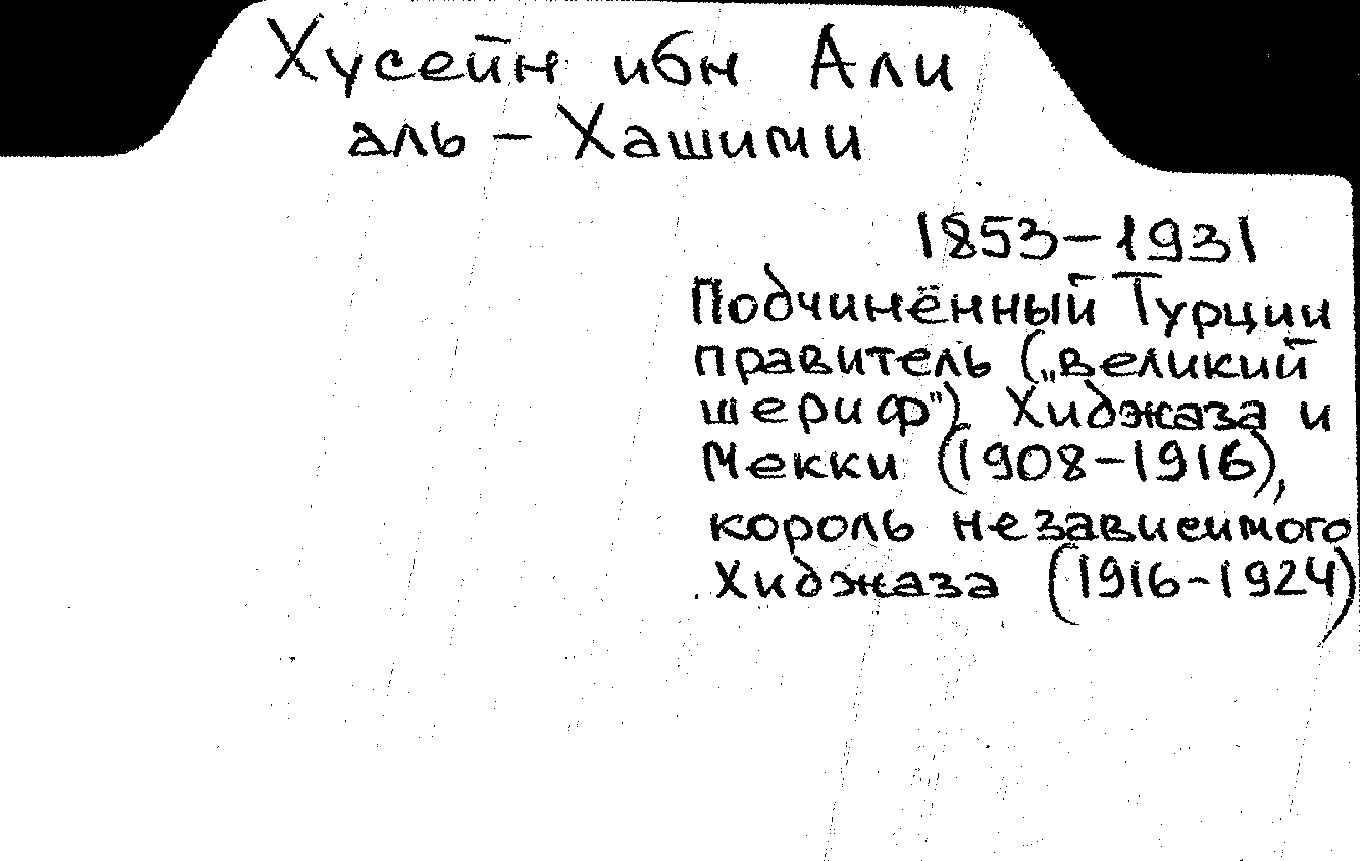 Хусейн ибн Али
аль - Хашими
1853-1931
Подчинённый Турции
правитель („великий
шериф") Хиджаза и
Мекки (1908-1916),
король независимого
Хиджаза (1916-1924)